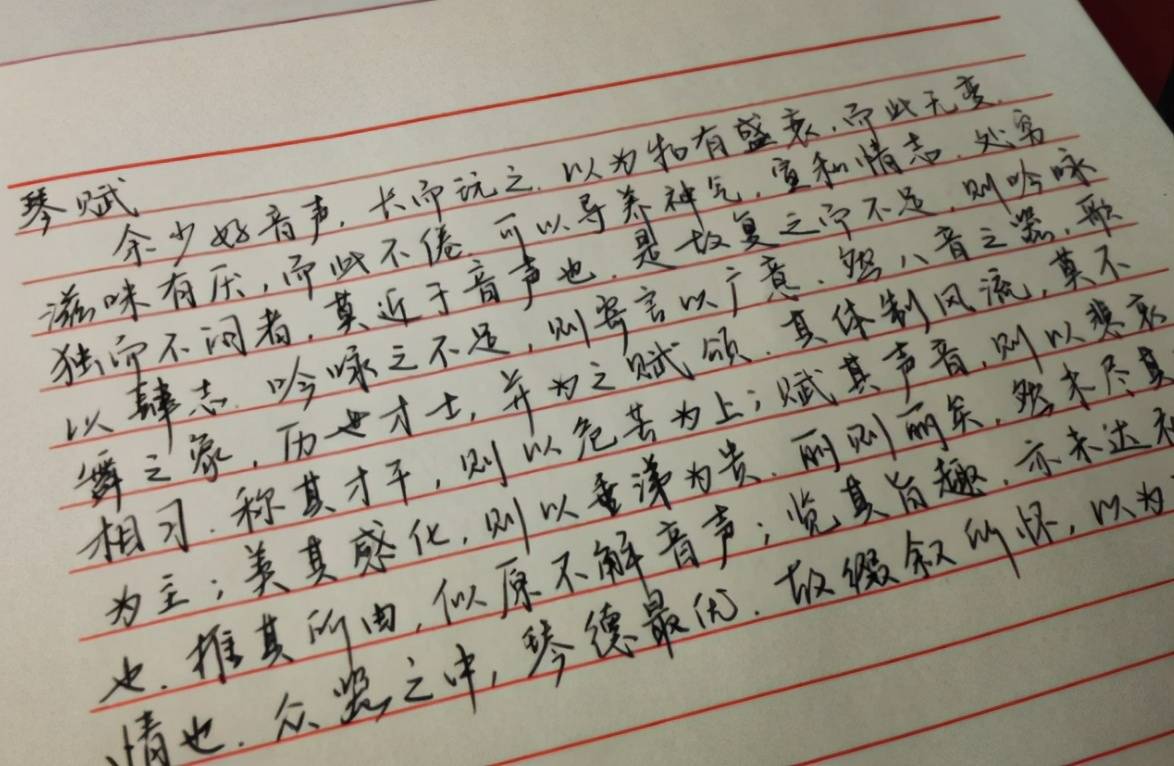 琴赋
余少好音声，长而玩之，以为物有盛衰，而此无变，
滋味有厌，而此不倦。可以导养神气，宣和情志，处穷
独而不闷者，莫近于音声也。是故复之而不足，则吟咏
以肆志，吟咏之不足，则寄言以广意。然八音之器，歌
舞之象，历世才士，并为之赋颂，其体制风流，莫不
相习。称其才干，则以危苦为上；赋其声音，则以悲哀
为主；美其感化，则以垂涕为贵。丽则丽矣，然未尽其
也。推其所由，似原不解音声；览其旨趣，亦未达礼
情也。众器之中，琴德最优。故缀叙所怀，以为